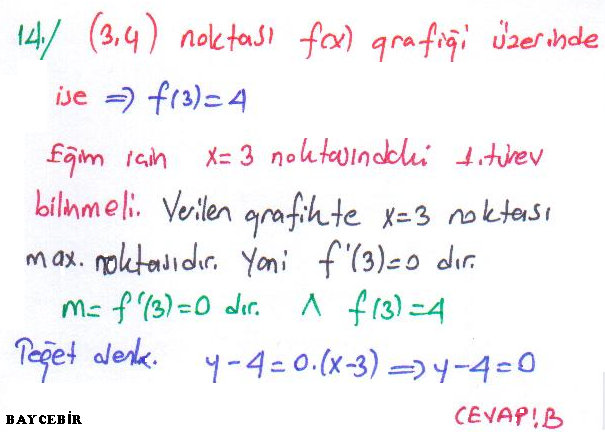 14./ (3,4) noktası f(x) grafiği üzerinde
ise ⇒ f(3)=4
Eğim için x=3 noktasındaki 1.türev
bilinmeli. Verilen grafikte x=3 noktası
max. noktasıdır. Yani f'(3)=0 dır.
m= f'(3)=0 dır. ∧ f(3)=4
Teğet denk. y-4=0.(x-3) ⇒ y-4=0
CEVAP!B
BAYCEBİR